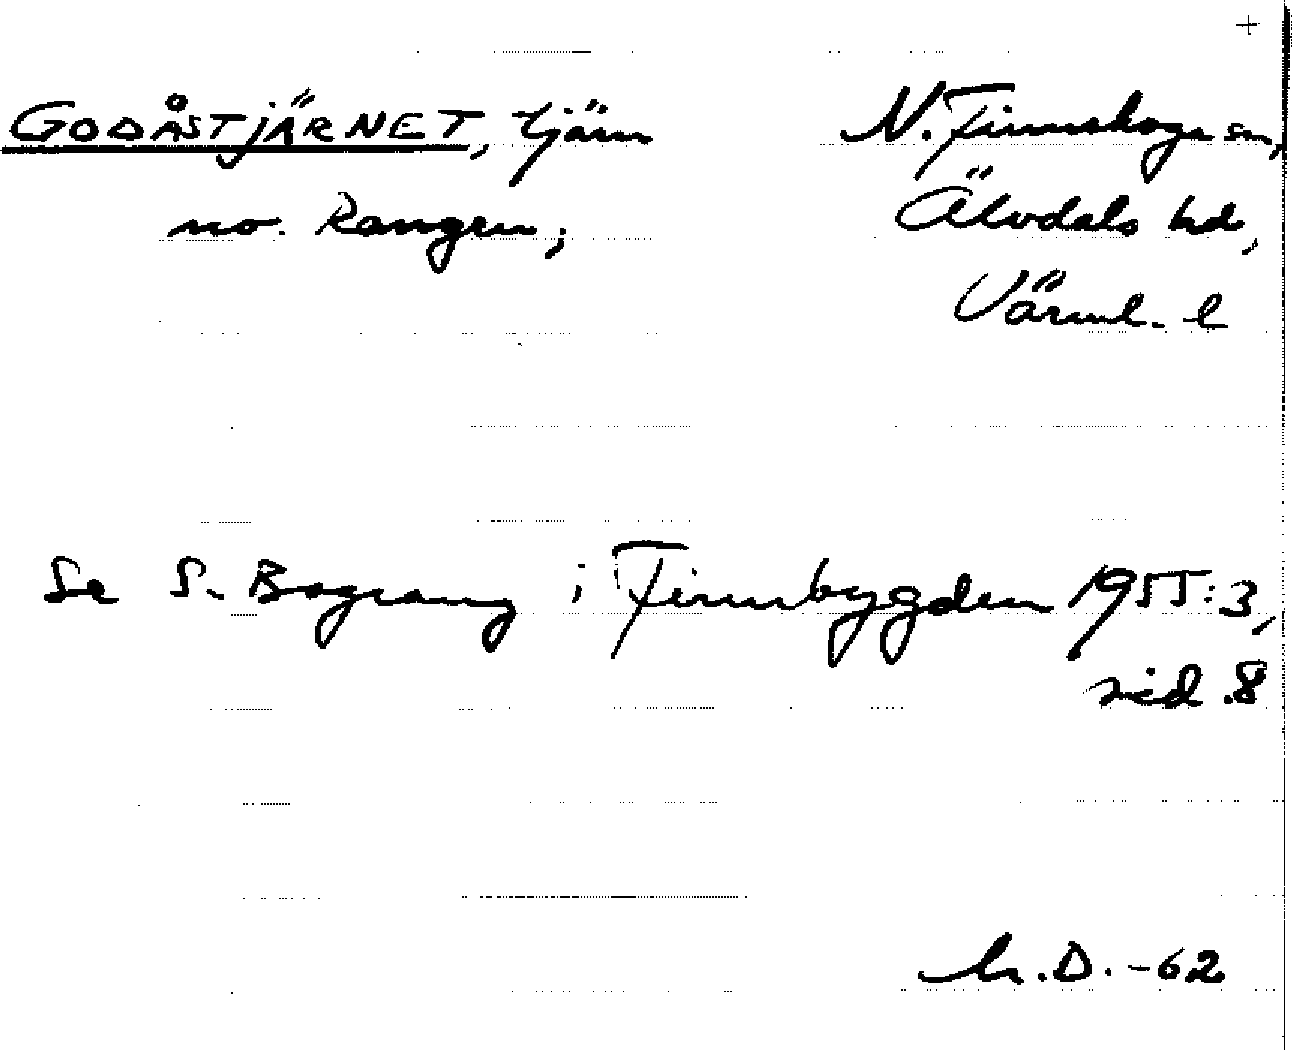 +
GODÅSTJÄRNET, tjärn
no. Rangen;
N. Finnskoga sn,
Älvdals hd,
Värml. l
Se S. Bograng i Finnbygden 1955:3,
sid. 8
D. -62